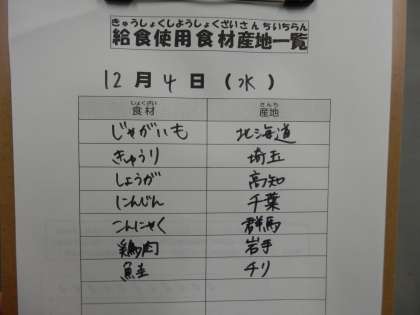 きゅうしょくしようしょくざいさんちいちらん
給食使用食材産地一覧
12月4日(水)
しょくざい さんち
食材 産地
じゃがいも 北海道
きゅうり 埼玉
しょうが 高知
にんじん 千葉
こんにゃく 群馬
鶏肉 岩手
鮭 チリ